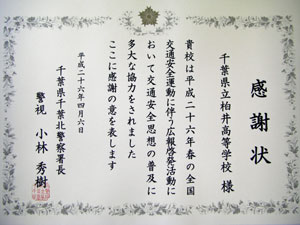 感謝状
千葉県立柏井高等学校 様
貴校は平成二十六年春の全国
交通安全運動に伴う広報啓発活動に
おいて交通安全思想の普及に
多大な協力をされました
ここに感謝の意を表します
平成二十六年四月六日
千葉県千葉北警察署長
警視 小林秀樹